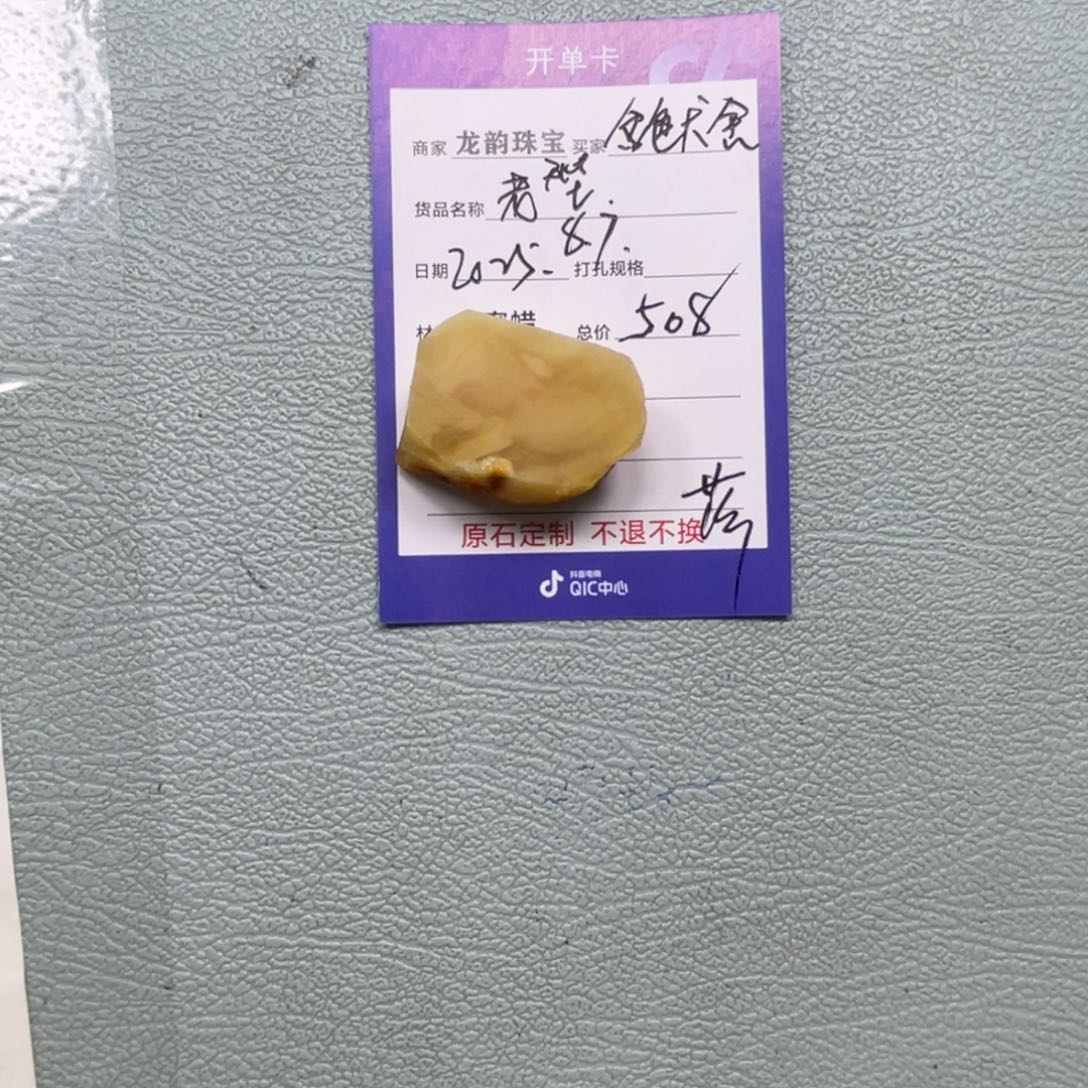 开单卡
商家 龙韵珠宝 买家
货品名称 老型
日期 2025.8.7. 打孔规格
材 蜜蜡 总价 508
原石定制 不退不换
抖音电商
QIC中心